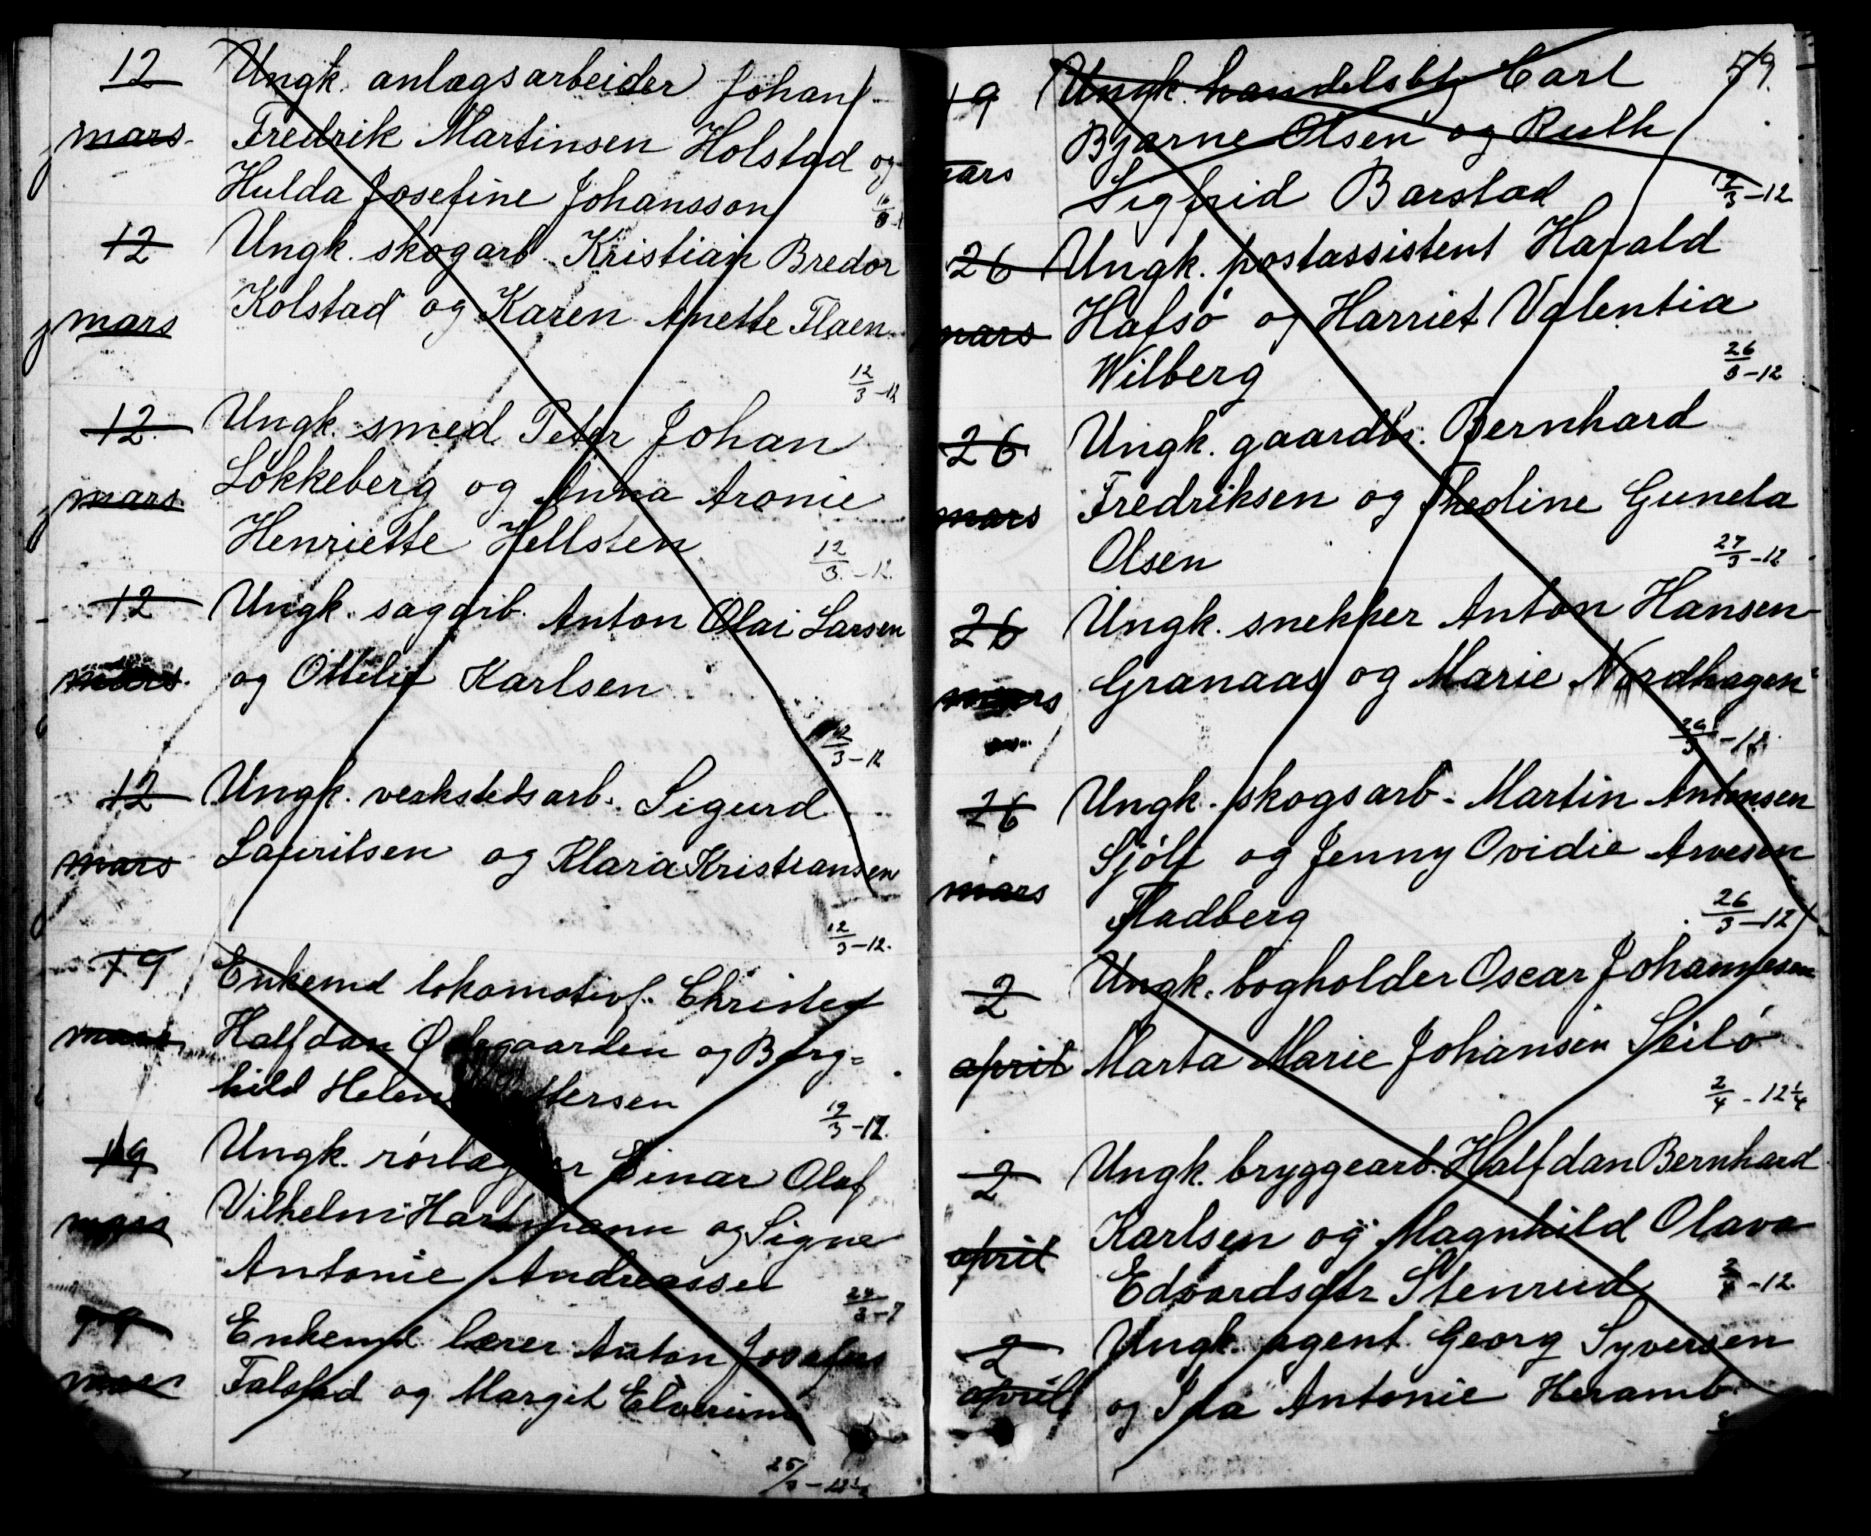 12 Ungk. anlægsarbeider Johan
mars. Fredrik Martinsen Holstad og
Hulda Josefine Johansson
12 Ungk. skogarb. Kristian Bredor
mars Kolstad og Karen Anette Flaen
12/3-12
12. Ungk. smed Peter Johan
Løkkeberg og Anna Aronie
mars. Henriette Hellsten 12/3.-12.
12 Ungk. sagarb. Anton Olai Larsen
mars. og Ottilie Karlsen
12/3-12
12 Ungk. verkstedsarb. Sigurd
mars Lauritsen og Klara Kristiansen
12/3-12.
19 Enkemd lokomotivf. Christen
mars Halfdan Ødegaarden og Borg=
hild Helene ttersen 19/3-12.
19 Ungk. rørlægger Einar Olaf
mars Vilhelm Hartmann og Signe
Antonie Andreassen 24/3-7
19 Enkemd lærer Anton Josefus
mars Falstad og Margit Elverum
25/3-
59.
19 Ungk. handelsbtj Carl
Bjarne Olsen og Ruth
mars Sigfrid Barstad 19/3-12
26 Ungk. postassistent Harald
mars Hafsø og Harriet Valentia
Wilberg 26/3-12
26 Ungk. gaardbr. Bernhard
mars Fredriksen og Thedine Gunela
Olsen 27/3-12
26 Ungk. snekker Anton Hansen
mars Granaas og Marie Nordhagen
26/3-12
26 Ungk. skogsarb. Martin Antonsen
Sjøli og Jenny Ovidie Arvesen
mars Fladberg 26/3-12
2 Ungk. bogholder Oscar Johannesen
april Marta Marie Johansen Seilø
2/4-12 1/4
2 Ungk. bryggearb. Halfdan Bernhard
april Karlsen og Magnhild Olava
Edvardsdtr Stenrud 2/4-12
2 Ungk. agent Georg Syversen
april og Ida Antonie Heramb